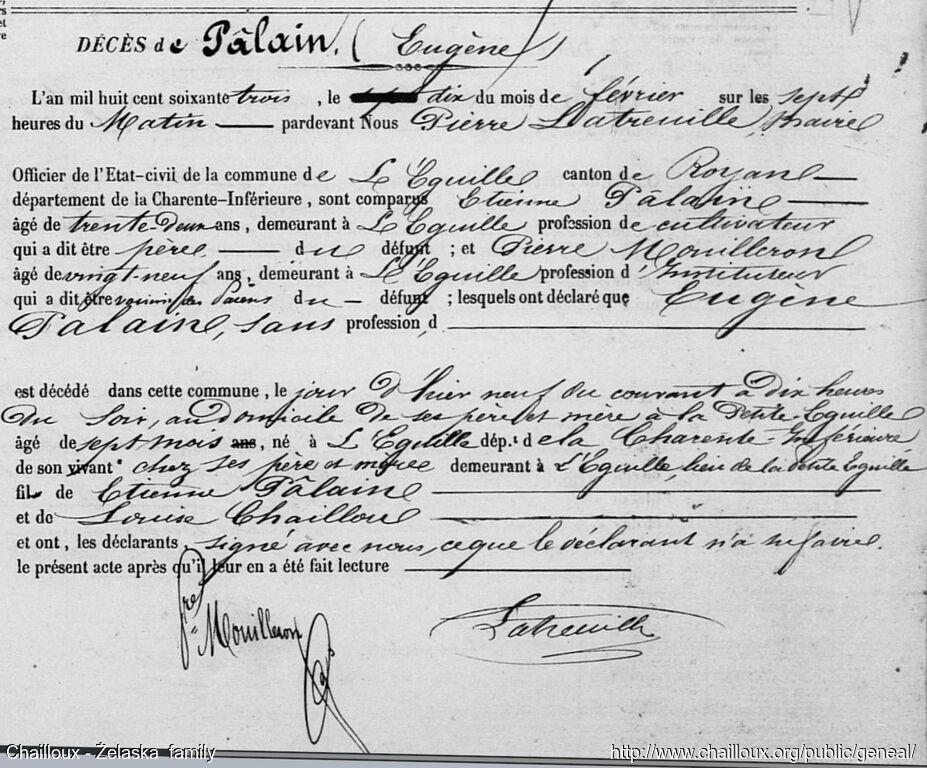 DÉCÈS de Pâlain, (Eugène)
L'an mil huit cent soixante trois, le dix du mois de février sur les sept
heures du Matin pardevant Nous Pierre Latreuille, Maire
Officier de l'Etat-civil de la commune de L'Eguille canton de Royan
département de la Charente-Inférieure, sont comparus Etienne Pâlain
âgé de trente-Deux ans, demeurant à L'Eguille profession de cultivateur
qui a dit être père du défunt ; et Pierre Mouilleron
âgé de vingt neuf ans, demeurant à L'Eguille profession d'Instituteur
qui a dit être voisin des Parens du défunt ; lesquels ont déclaré que Eugène
Pâlain, sans profession, d
est décédé dans cette commune, le jour d'hier neuf du courant à dix heures
du soir, au domicile de ses père et mère à la Petite-Eguille
âgé de sept mois ans, né à L'Eguille dép.t de la Charente-Inférieure
de son vivant chez ses père et mère demeurant à L'Eguille, lieu de la petite Eguille
fils de Etienne Pâlain
et de Louise Chaillou
et ont, les déclarants signé avec nous, ce que le déclarant n'a su faire.
le présent acte après qu'il leur en a été fait lecture
Mouilleron
Latreuille
Chailloux - Żelaska family
http://www.chailloux.org/public/geneal/